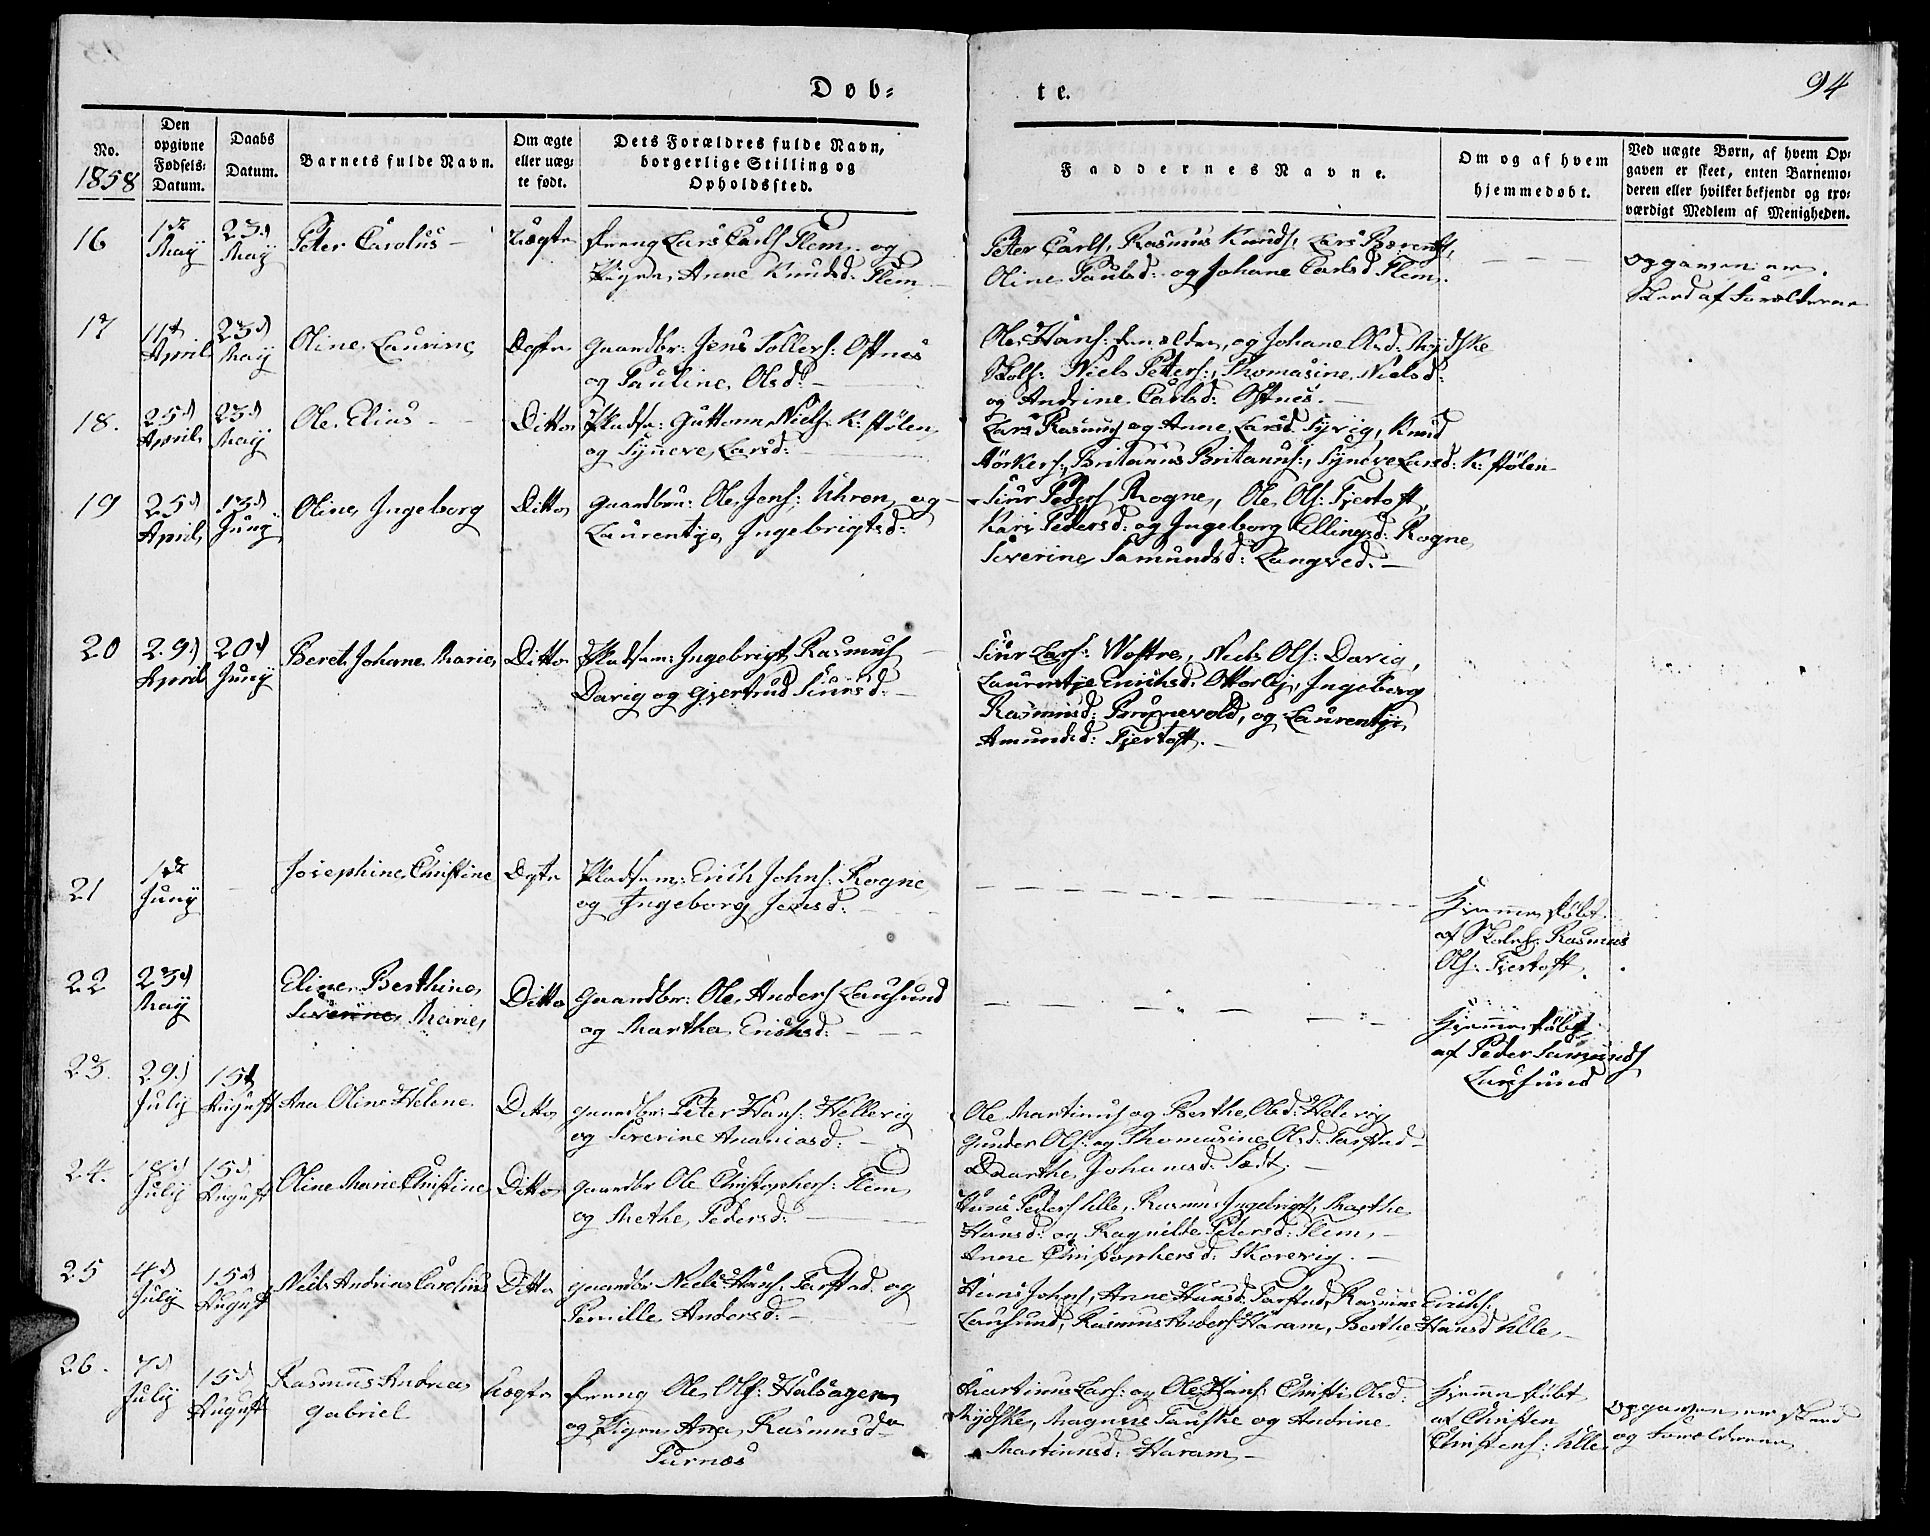 Døb-
te.
94
No.
1858
Den opgivne Fødsels-Datum.
Daabs Datum.
Barnets fulde Navn.
Om ægte eller uæg-te født.
Dets Forældres fulde Navn, borgerlige Stilling og Opholdssted.
Faddernes Navne.
Om og af hvem hjemmedøbt.
Ved uægte Børn, af hvem Op-gaven er skeet, enten Barnemo-deren eller hvilket bekjendt og tro-værdigt Medlem af Menigheden.
16
1ste May
23d May
Peter Carolus
Uægte
Dreng Lars Carls Flem og
Pigen Anne Knudsd: Flem
Peter Carls, Rasmus Knuds, Lars Bærents,
Oline Paulsd: og Johane Carlsd Flem.
Opgaven er
skeed af Forælderne
17
11te April
23d May
Oline Laurine
Ægte
Gaardbr: Jens Tollefs: Ostnes
og Pauline Olsd:
Ole Hans: den ældre, og Johane Olsd: Myدske
Niels Petters:, Thomasine Nielsd:
og Andrine Carlsd: Ostnes.
18.
25d April
23d May
Ole Elias
Ditto
Pladsm: Guttorm Niels K:stølen
og Syneve Larsd:
Lars Rasmus og Anne Larsd Syvig, Knud
Britanus Britanus:, Syneve Larsd: K:stølen
19
25d April
13d Juny
Oline Ingeborg
Ditto
Gaardbru: Ole Jens: Uhren og
Laurentje Ingebrigtsd:
Siur Peders Rogne, Ole Ols: Fjertoft,
Kari Pedersd: og Ingeborg Ellingsd: Rogne
Severine Samundsd: Langved.
20
29d April
20d Juny
Beret Johane Marie
Ditto
Pladsm: Ingebrigt Rasmus
Davig og Gjertrud Siursd:
Siur Lars: Wostre, Niels Ols: Davig,
Laurentje Erichsd: Otterlej, Ingeborg
Rasmusd: Brunevold, og Laurentje
Amundsd: Fjertoft.
21
1ste Juny
Josephine Christine
Ægte
Pladsm: Erich Johns: Rogne
og Ingeborg Jensd:
Hjemmedøbt
af Skolel: Rasmus
Ols: Fjertoft
22
23d May
Eline Berthine
Severine Marie
Ditto
Gaardbr: Ole Anders Lausund
og Martha Erichsd:
Hjemmedøbt
af Peder Samunds
Lausund
23.
29d July
15d August
Ana Oline Helene
Ditto
Gaardbr: Peter Hans: Hellevig
og Severine Ananiasd:
Ole Martinus og Berthe Olsd: Helevig
Gunder Ols: og Thomasine Olsd: Farstad
Johansd: Sædt.
24.
18d July
15d August
Oline Marie Christine
Ditto
Gaardbr Ole Christophers: Flem
og Methe Pedersd:
Hans Peders Ulle, Rasmus Ingebrigts, Marthe
Hansd: og Ragnilde Petersd: Flem,
Anne Christophersd: Skorevig.
25
4d July
15d August
Niels Andreas Carolius
Ditto
Gaardbr Niels Hans: Farstad og
Pernille Andersd:
Hans Johns, Anne Hansd: Farstad, Rasmus Erichs:
Lausund, Rasmus Anders Haram, Berthe Hansd Ulle
26.
7d July
15d August
Rasmus Andrea
Gabriel
Uægte
Dreng Ole Ols: Hulsagen
og Pigen Ana Rasmusda
Furnæs
Martinus Lars: og Ole Hans: Olsd:
Magnus og Andrine
Martinusd: Haram
Hjemmedøbt
af Christen
Christens: Ulle
Opgaven er skeed
og Forælderne